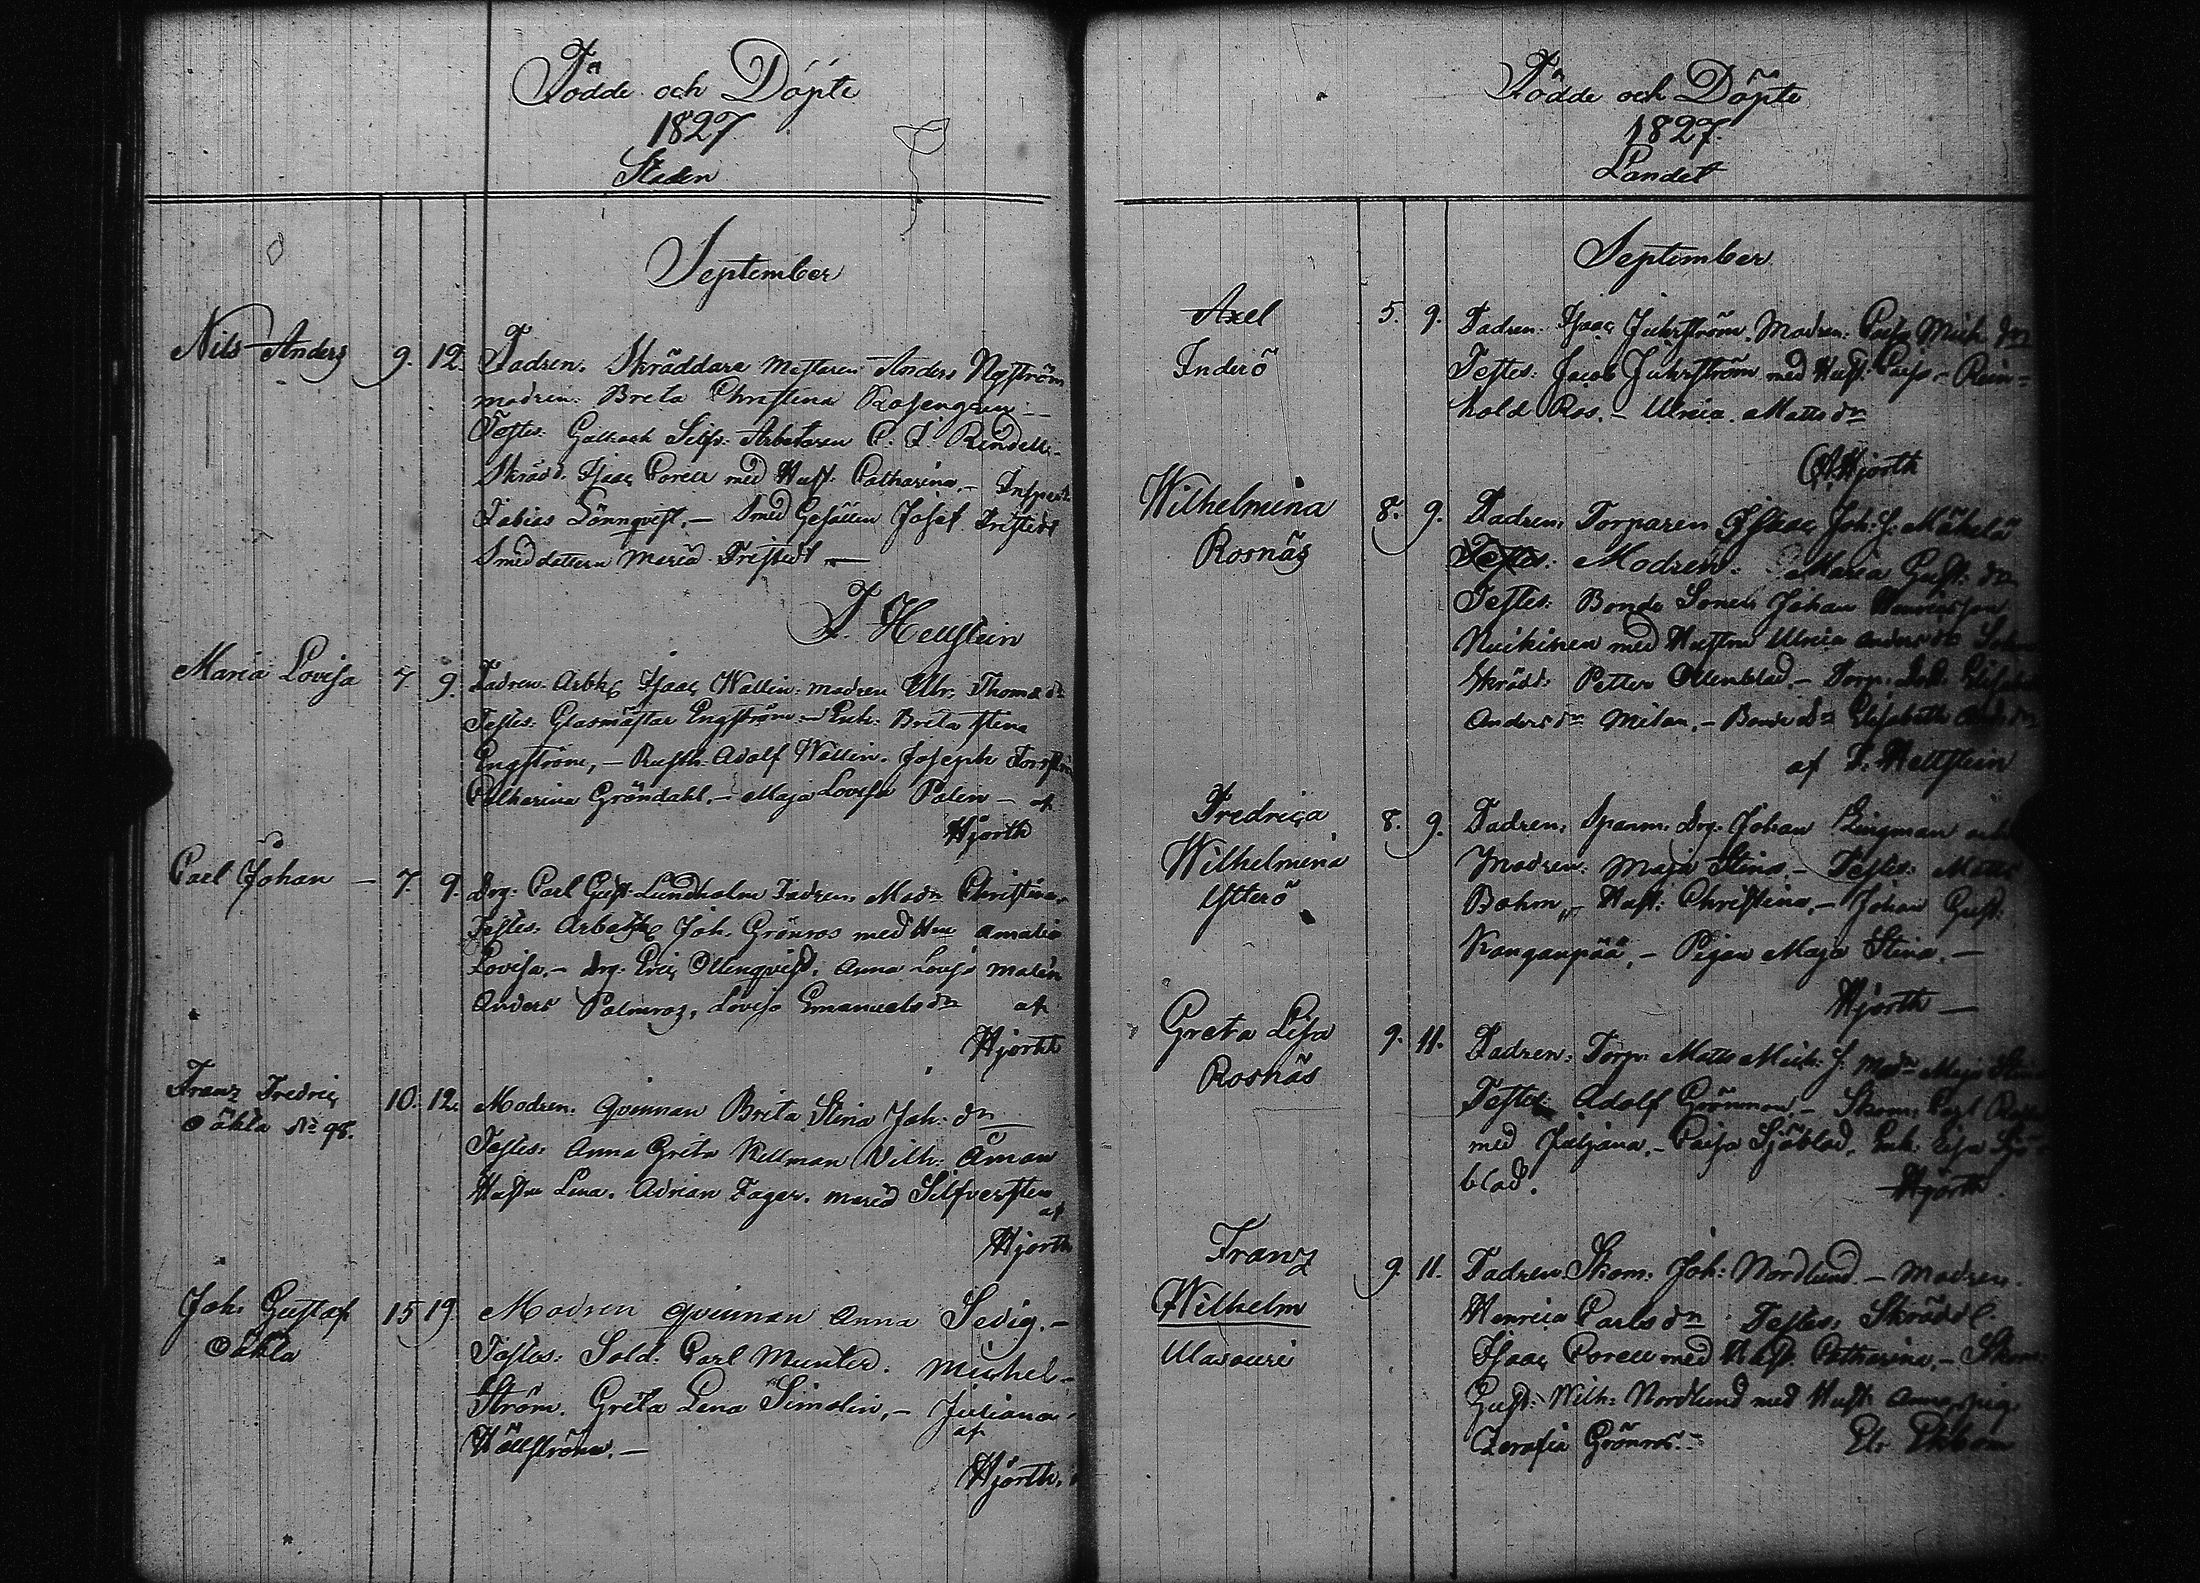 Födde och Döpte
1827
Staden
September
Nils Anders 9. 12. Fadren. Skräddare Mästaren Anders Nyström
modren: Breta Christina Rosengren
Testes: Guld och Silfv: Arbetaren C. F. Rindell.
Skrädd. Isaac Corell med Hust. Catharina. - Inspect.
Tobias Lönnqvist. - Smed Gesällen Josef Fristedt
Smed dottern Maria Fristedt
F. Hellstein
Maria Lovisa 7. 9. Fadren. Arbk. Isaac Wallin. modren Ulr. Thomae dr
Testes: Glasmästar Engström Enk: Breta Stina
Engström, - Rusth. Adolf Wallin. Joseph
Catharina Gröndahl. - Maja Lovisa Palin - af
Hjorth
Carl Johan - 7. 9. Drg. Carl Gust. Lundholm Fadren. Modn Christina.
Testes: Arbetsk Joh. Grönros med Hu Amalia
Lovisa. - drg. Eric Ollenqvist. Anna Lovisa Malin
Anders Palmros, Lovisa Emanuels dr af
Hjorth
Franz Fredric 10. 12. Modren: Qvinnan Brita Stina Joh. dr
Oähla No 98.
Testes: Anna Greta Kellman Vilh: Åman
Hustru Lena. Adrian Fager. Maria Silfversten
af
Hjorth
Joh. Gustaf 15 19. Modren qvinnan Anna Sedig. -
Oähla
Testes: Sold. Carl Munter. Michel
Ström. Greta Lena Simolin, - Juliana
af
Hällström. -
Hjorth.
Födde och Döpte
1827.
Landet
September
Axel 5. 9. Fadren. Isaac Juhrström. Modren: Caisa Mich. dr
Inderö Testes: Jacob Juhrström med Hust: Caisa - Rein=
hold Ros. - Ulrica Matts dr
Hjorth
Wilhelmina 8. 9. Fadren. Torparen Isaac Joh: S. Mäkelä
Rosnäs Testes: Modren: Maria Gust: dr
Testes: Bonde Sonen Johan Henricsson
Kuikinen med Hustru Ulrica Anders dr
Skrädd: Petter Ollenblad. - Torp. dott.
Anders dr Mitan. - Bonde dr Elisabeth
af F. Hellstein
Fredrica 8. 9. Fadren. Spanm. Drg. Johan Bingman
Wilhelmina Modren: Maja Stina. - Testes: Matts
Ytterö Bohm, Hust: Christina. - Johan Gust.
Kanganpää, - Pigan Maja Stina. -
Hjorth -
Greta Lisa 9. 11. Fadren: Torp: Matts Mich: S. Modn Maja Stina
Rosnäs Testes Adolf Grönman, - Skom: Carl
med Juliana. - Caisa Sjöblad. Enk. Lisa Sjö-
blad. Hjorth.
Franz 9. 11. Fadren Skom: Joh: Nordlund - Modren.
Wilhelm Henrica Carls dr Testes: Skrädd.
Ulasouri Isaac Corell med Hust. Catharina. - Skom.
Gust: Wilh: Nordlund med Hust. Anna, pig.
Zerafia Grönros. - Ekbom